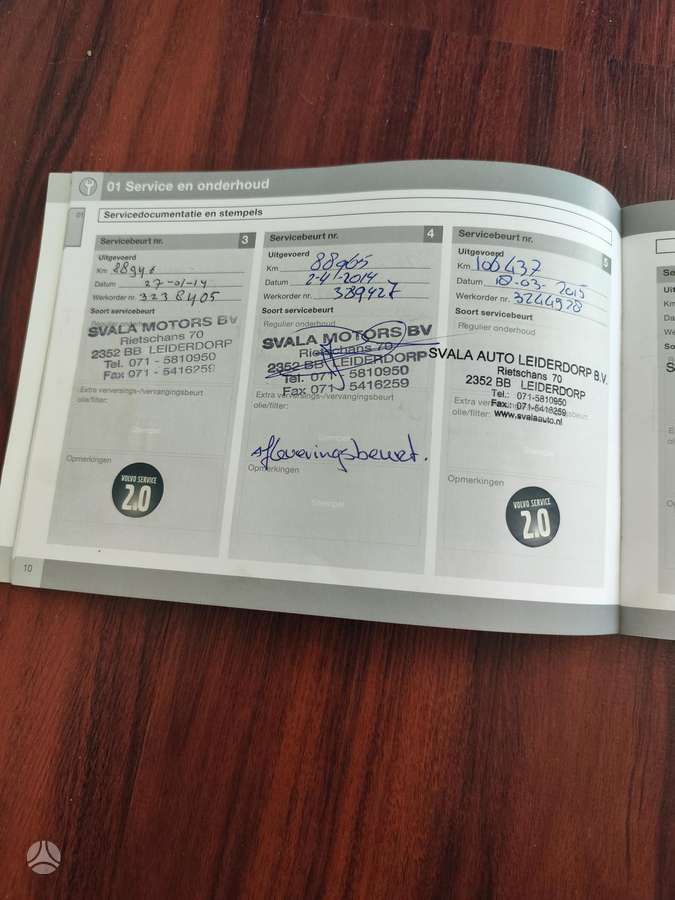 01 Service en onderhoud
01
Servicedocumentatie en stempels
Servicebeurt nr. 3
Uitgevoerd
Km 88946
Datum 27-01-14
Werkorder nr. 3238405
Soort servicebeurt
SVALA MOTORS BV
Rietschans 70
2352 BB LEIDERDORP
Tel. 071 - 5810950
Fax 071 - 5416259
Extra verversings-/vervangingsbeurt
olie/filter:
Opmerkingen
VOLVO SERVICE
2.0
Servicebeurt nr. 4
Uitgevoerd
Km 88965
Datum 2-4-2014
Werkorder nr. 389427
Soort servicebeurt
Regulier onderhoud
SVALA MOTORS BV
Rietschans 70
2352 BB LEIDERDORP
Tel. 071 - 5810950
Fax 071 - 5416259
Extra verversings-/vervangingsbeurt
olie/filter:
Afleveringsbeurt.
Opmerkingen
Stempel
Servicebeurt nr. 5
Uitgevoerd
Km 106437
Datum 18-03-2015
Werkorder nr. 3244928
Soort servicebeurt
Regulier onderhoud
SVALA AUTO LEIDERDORP B.V.
Rietschans 70
2352 BB LEIDERDORP
Tel.: 071-5810950
Fax.: 071-5416259
www.svalaauto.nl
Extra verversings-/vervangingsbeurt
olie/filter:
Opmerkingen
VOLVO SERVICE
2.0
10